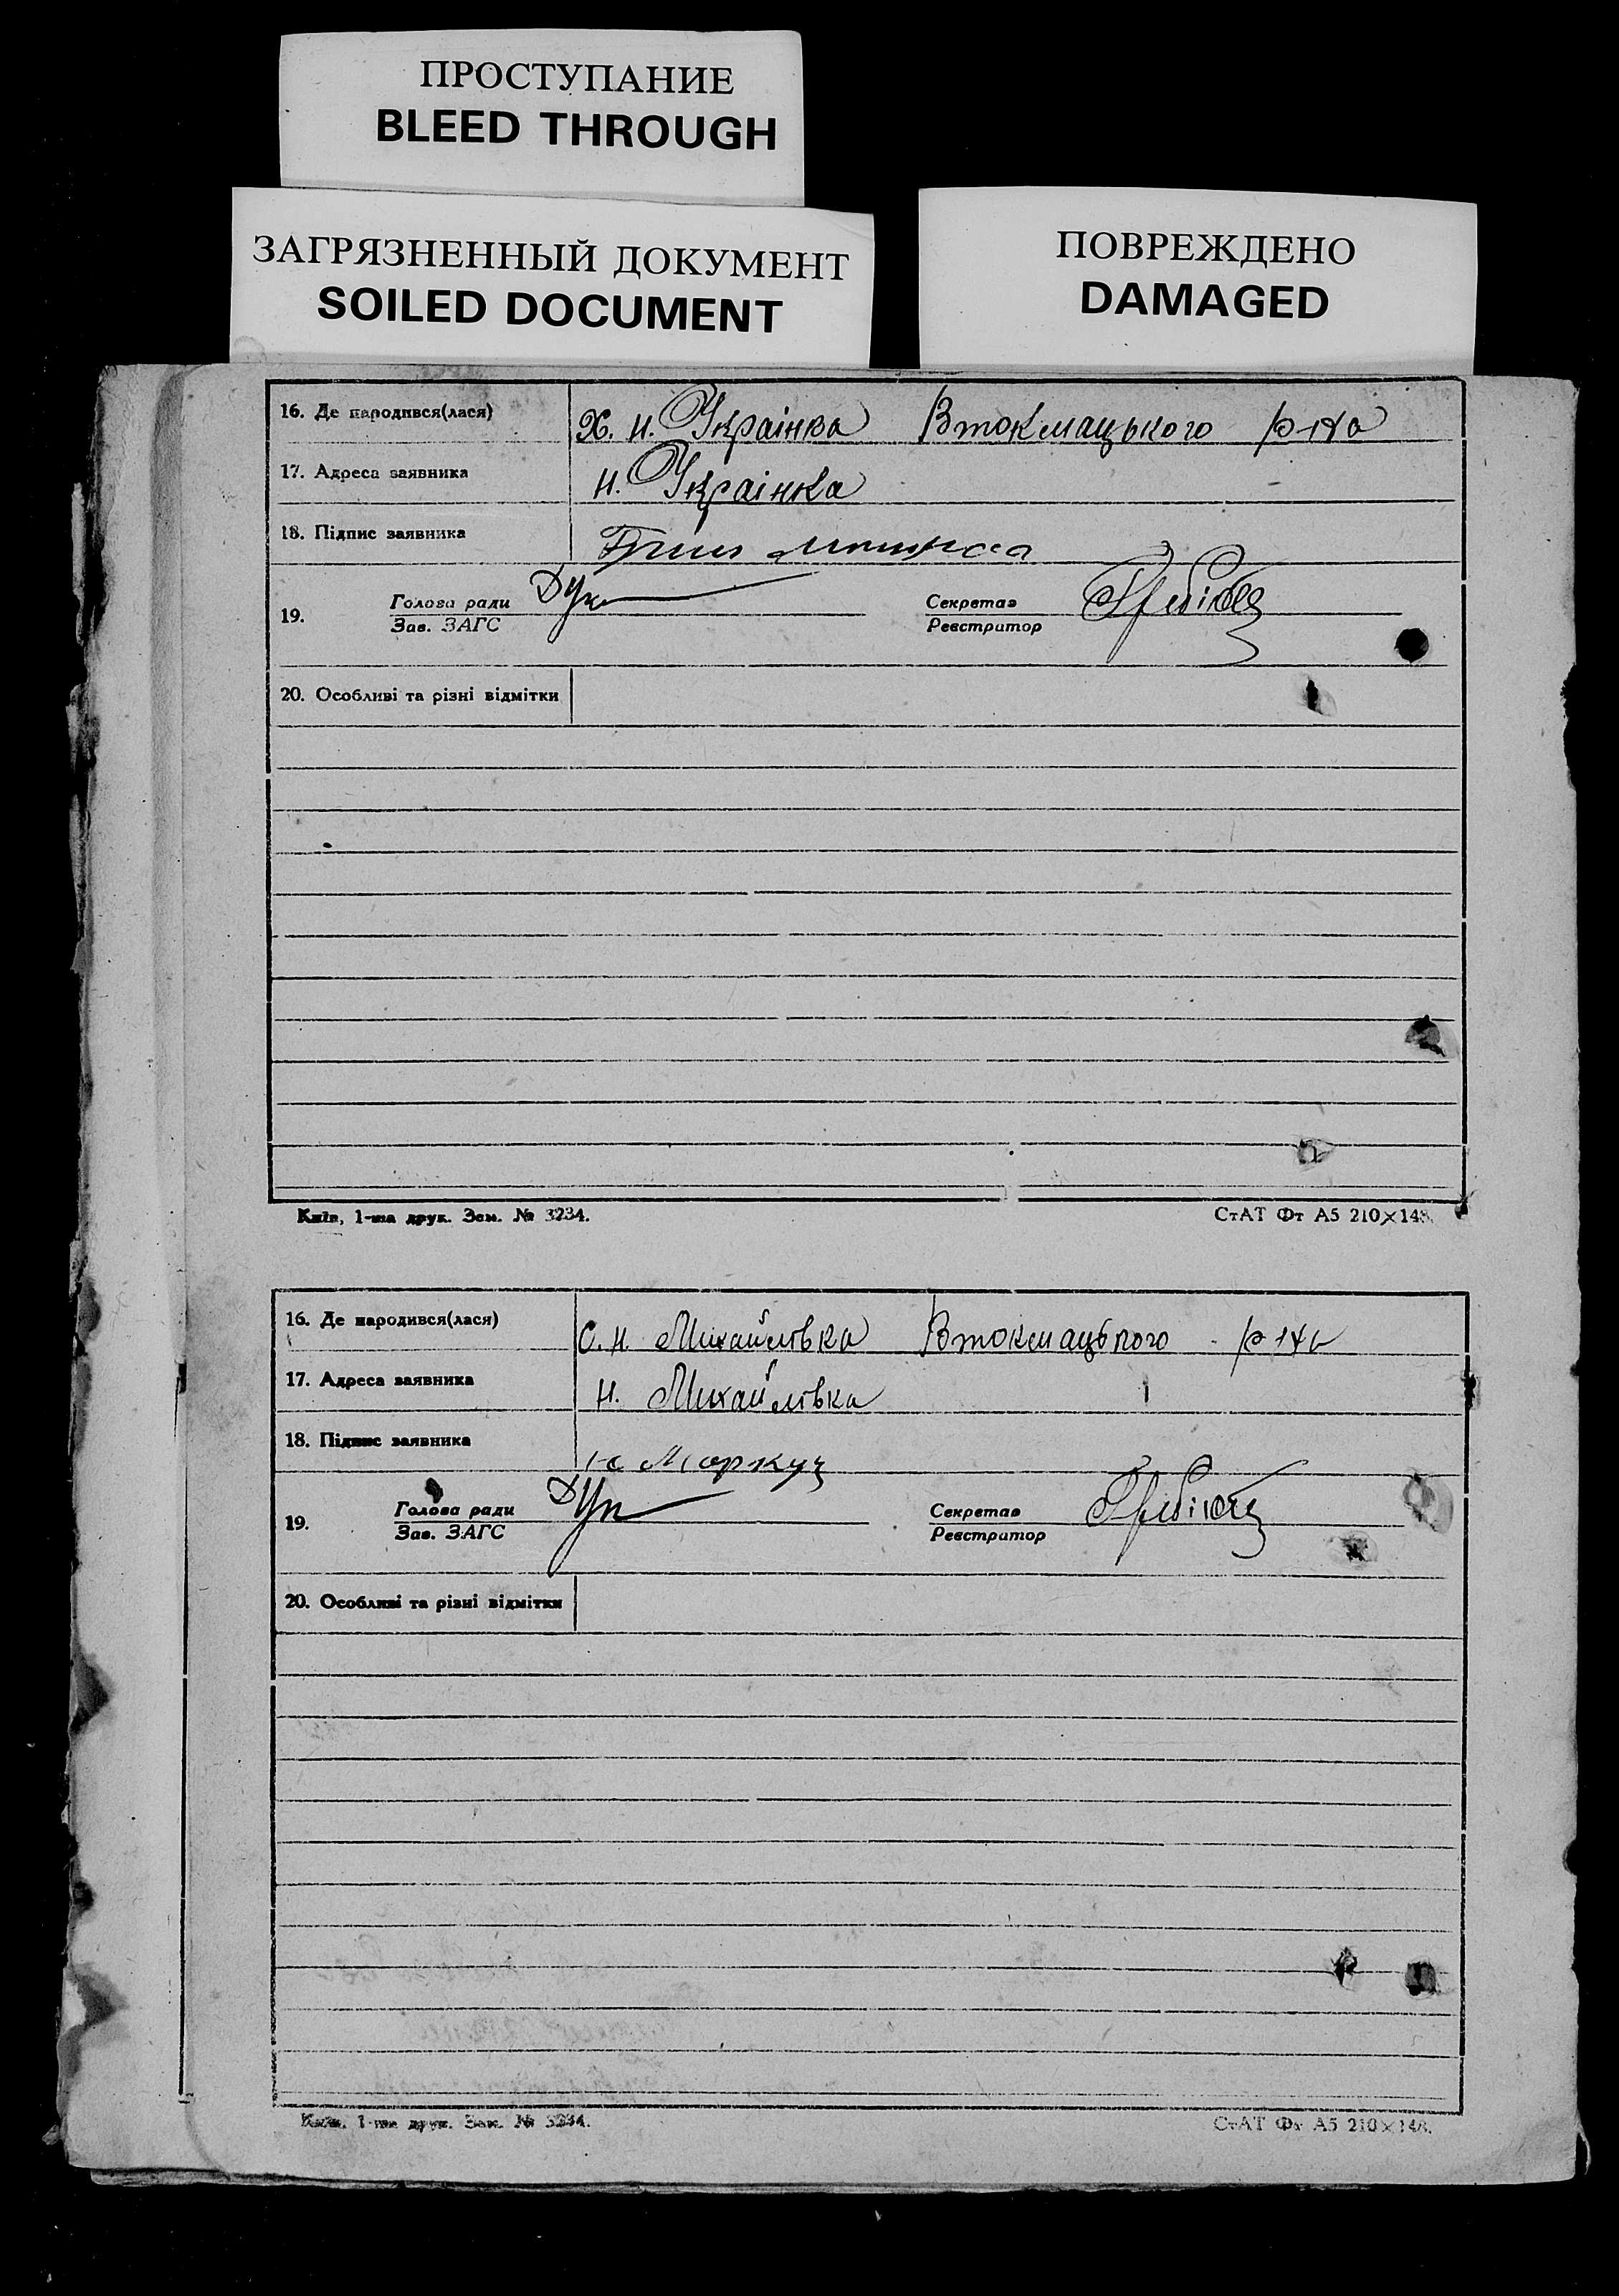 ПРОСТУПАНИЕ
BLEED THROUGH
ЗАГРЯЗНЕННЫЙ ДОКУМЕНТ
SOILED DOCUMENT
ПОВРЕЖДЕНО
DAMAGED
16. Де народився(лася) Х. Н. Українка Втокмацького р-на
17. Адреса заявника Н. Українка
18. Підпис заявника
19. Голова ради Секретар
Зав. ЗАГС Реєстратор
20. Особливі та різні відмітки
Київ, 1-ша друк. Зам. № 3234. СтАТ Фт А5 210×148.
16. Де народився(лася) С. Н. Михайлівка Втокмацького р-на
17. Адреса заявника Н. Михайлівка
18. Підпис заявника
19. Голова ради Секретар
Зав. ЗАГС Реєстратор
20. Особливі та різні відмітки
Київ, 1-ша друк. Зам. № 3234. СтАТ Фт А5 210×148.